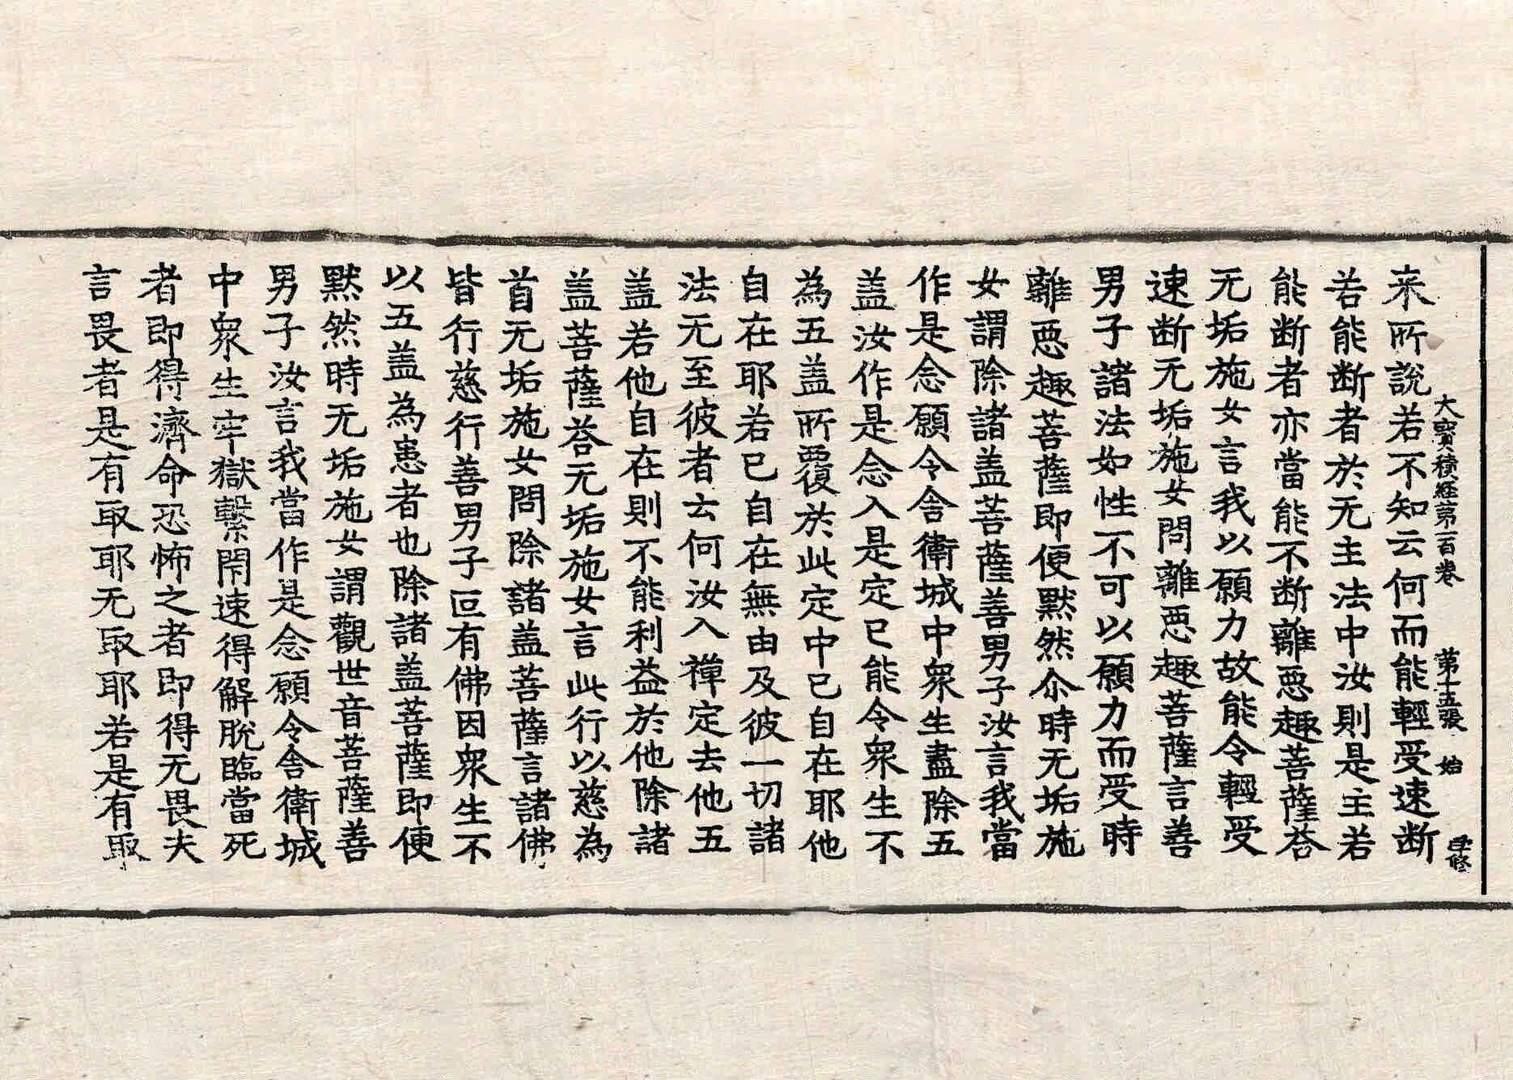 大寶積經第一百卷 第十五張 始
来所說若不知云何而能輕受速断
若能断者於无主法中汝則是主若
能断者亦當能不断離惡趣菩薩荅
无垢施女言我以願力故能令輕受
速断无垢施女問離惡趣菩薩言善
男子諸法如性不可以願力而受時
離惡趣菩薩即便默然尒時无垢施
女謂除諸盖菩薩善男子汝言我當
作是念願令舍衛城中衆生盡除五
盖汝作是念入是定已能令衆生不
為五盖所覆於此定中已自在耶他
自在耶若已自在無由及彼一切諸
法无至彼者云何汝入禅定去他五
盖若他自在則不能利益於他除諸
盖菩薩荅无垢施女言此行以慈為
首无垢施女問除諸盖菩薩言諸佛
皆行慈行善男子叵有佛因衆生不
以五盖為患者也除諸盖菩薩即便
默然時无垢施女謂觀世音菩薩善
男子汝言我當作是念願令舍衛城
中衆生牢獄繫閇速得解脫臨當死
者即得濟命恐怖之者即得无畏夫
言畏者是有取耶无取耶若是有取